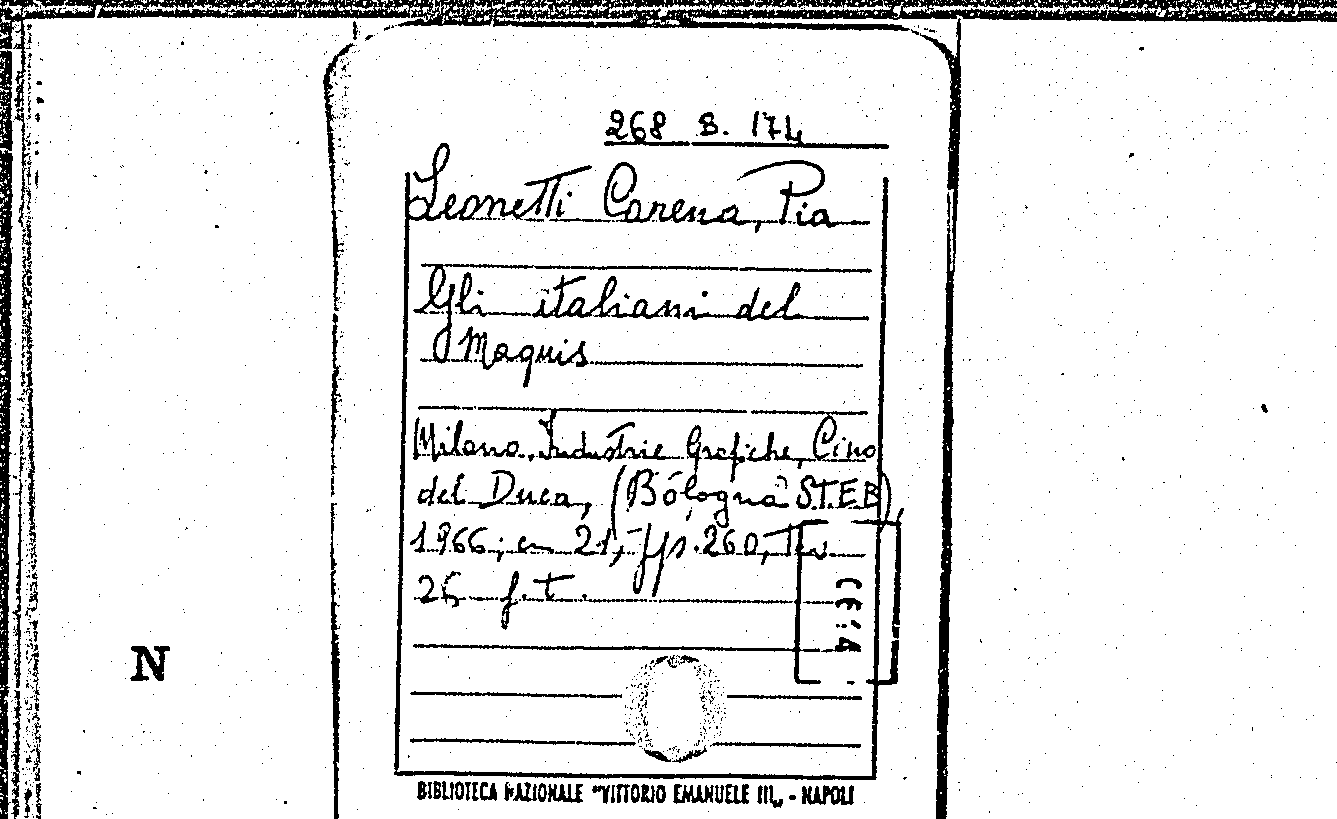 268 B. 174
Leonetti Carena, Pia
Gli italiani del
Maquis
Milano, Industrie Grafiche, Cino
del Duca, (Bologna S.T.E.B),
1966; cm 21, pp. 260, Tav
26 f.t.
N
BIBLIOTECA NAZIONALE "VITTORIO EMANUELE III„ - NAPOLI